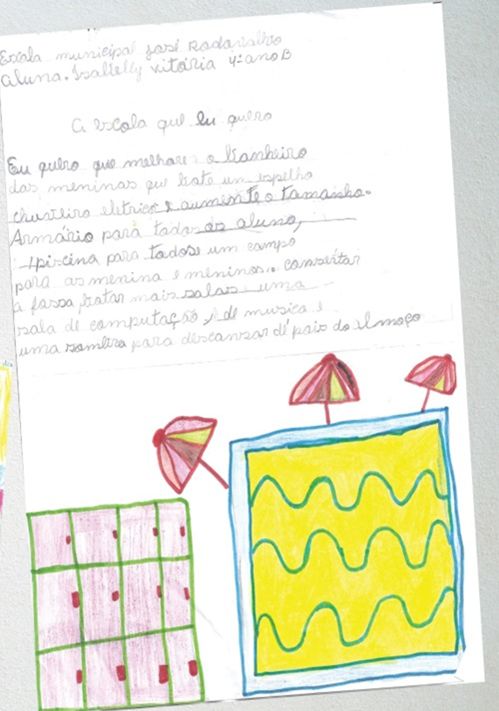 Escola municipal josé Radarvalho
aluna. Isabelly vitória 4º ano B
A escola que eu quero
Eu quero que melhore o banheiro
das meninas que bote um espelho
chuveiro eletrico e aumente o tamanho.
Armário para todos os aluno,
1 piscina para todose um campo
para as menina e meninos. consertar
a fossa, botar mais salas uma
sala de computação, de musica e
uma sombra para descansar dẽ pois do almoço